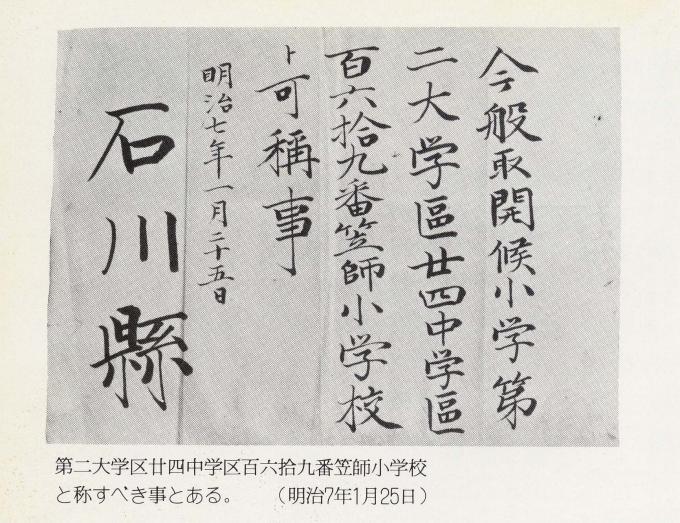 今般取開候小学第
二大学區廿四中学區
百六拾九番笠師小学校
ト可稱事
明治七年一月二十五日
石川縣
第二大学区廿四中学区百六拾九番笠師小学校
と称すべき事とある。 （明治7年1月25日）